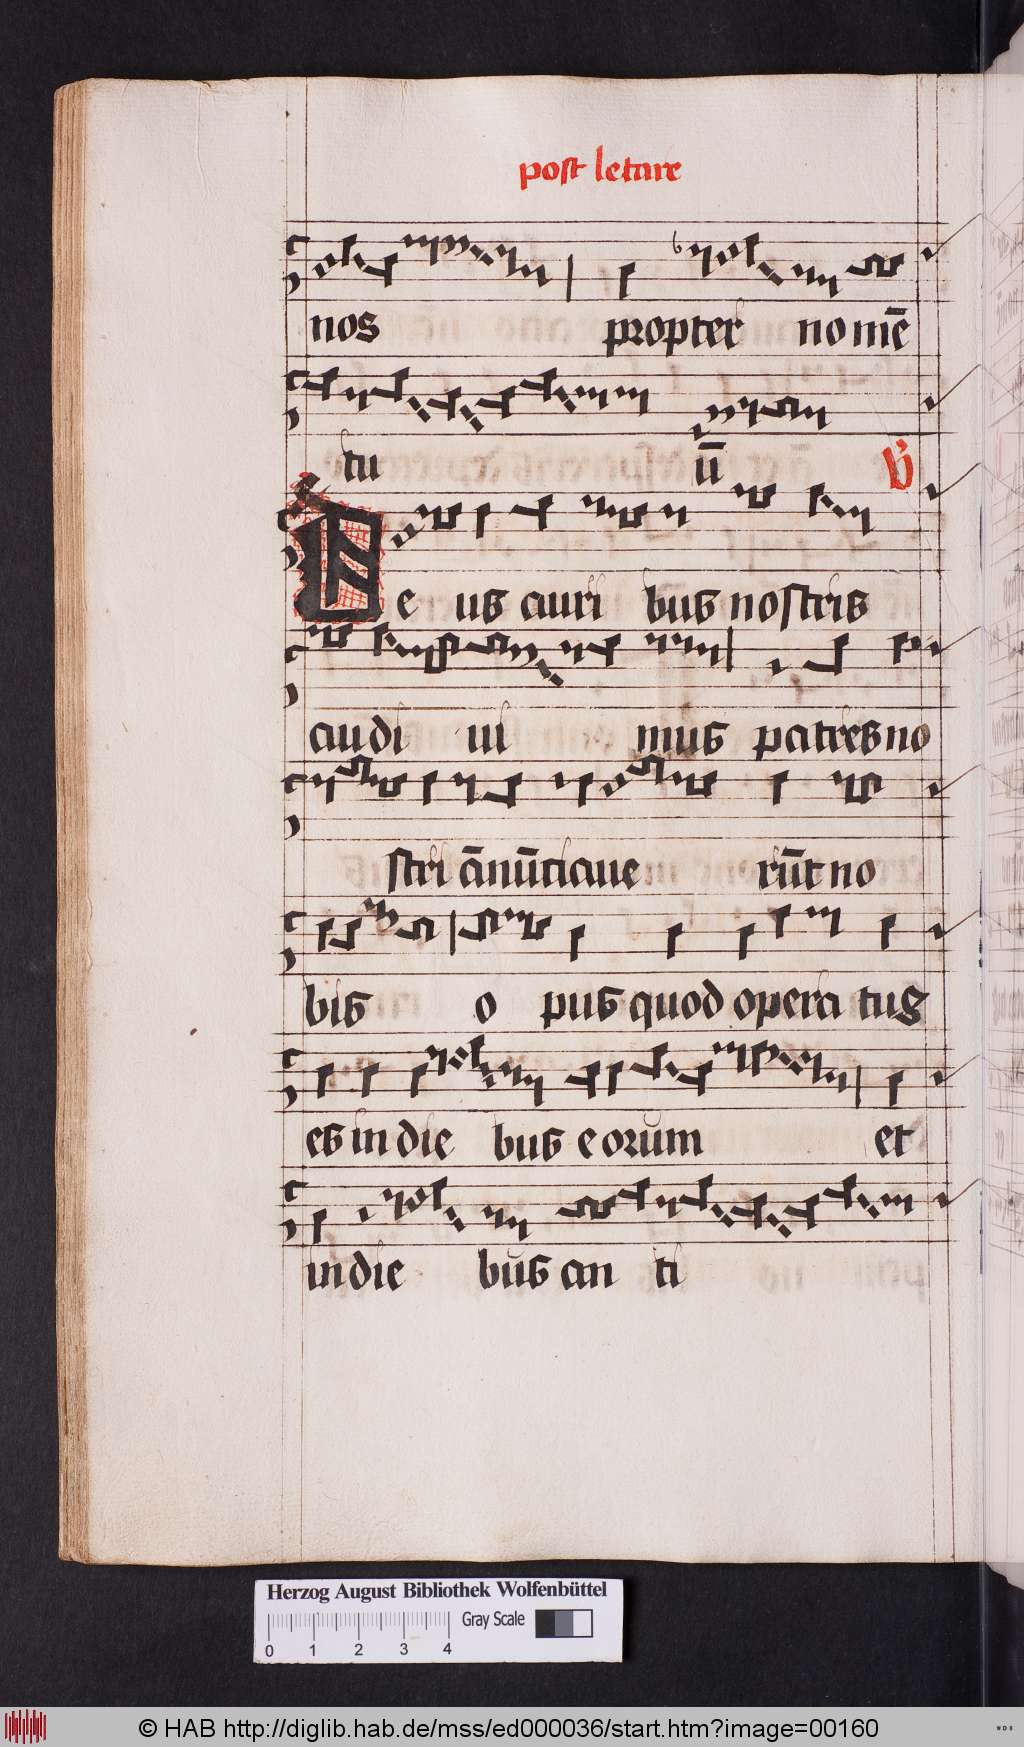 post letare
nos propter no mē
tu ū ℣
De us auri bus nostris
audi ui mus patres no
stri ānūtiaue rūt no
bis o pus quod opera tus
es in die bus e orum et
in die bus an ti
Herzog August Bibliothek Wolfenbüttel
Gray Scale
0 1 2 3 4
© HAB http://diglib.hab.de/mss/ed000036/start.htm?image=00160